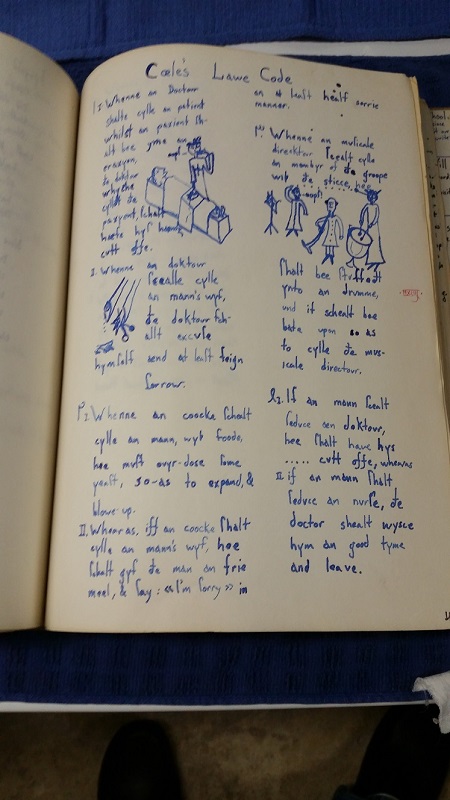 Cœle's Lawe Code
1: Whenne an Doctour
shalte cylle an patient
whilst an pazient sh-
alt bee yne an
erazyon,
de doktor
whyche
cylls de
pazyent, schalt
haete hys hands
cutt offe.
2. Whenne an doktour
scealle cylle
an mann's wyf,
de doktour sch-
allt excuse
hymself send at least feign
sorrow.
Whenne an coocke schealt
cylle an mann, wyb foode,
hee must ovyr-dose some
yeast, so-as to expand, &
blowe up.
II. Wheras, iff an coocke shalt
cylle an mann's wyf, hee
schalt gyf de man an frie
meel, & say: «I'm sorry» in
an at least healf sorrie
manner.
Whenne an musicale
direcktour scealt cylle
an membyr of de groupe
wit de sticce, hee
oop!
shalt bee stuffedt
ynto an drumme,
und it schealt bee
bate upon so as
to cylle de mus-
icale directour.
If an mann scealt
seduce aen doktour,
hee shalt have hys
..... cutt offe, wheras
II. if an mann shalt
seduce an nurse, de
doctor shealt wysce
hym an good tyme
and leave.